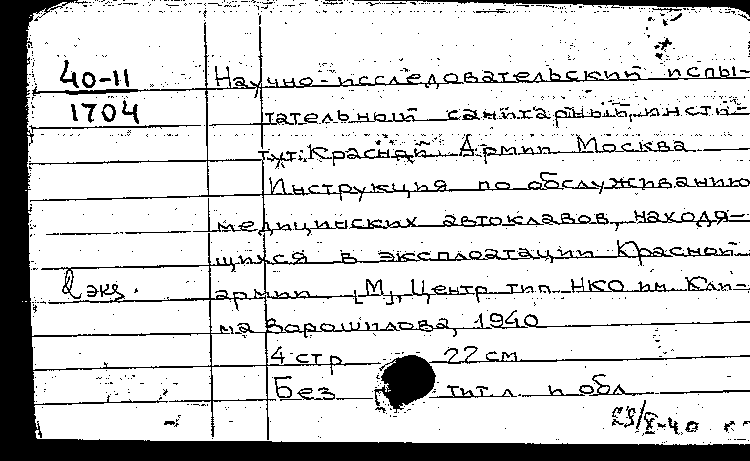 40-11
1704
Научно-исследовательский испы-
тательный санитарный инсти-
тут Красной Армии Москва
Инструкция по обслуживанию
медицинских автоклавов, находя-
щихся в эксплоатации Красной
армии [М], Центр тип НКО им. Кли-
2 экз.
ма Ворошилова, 1940
4 стр 22 см
Без тит л и обл